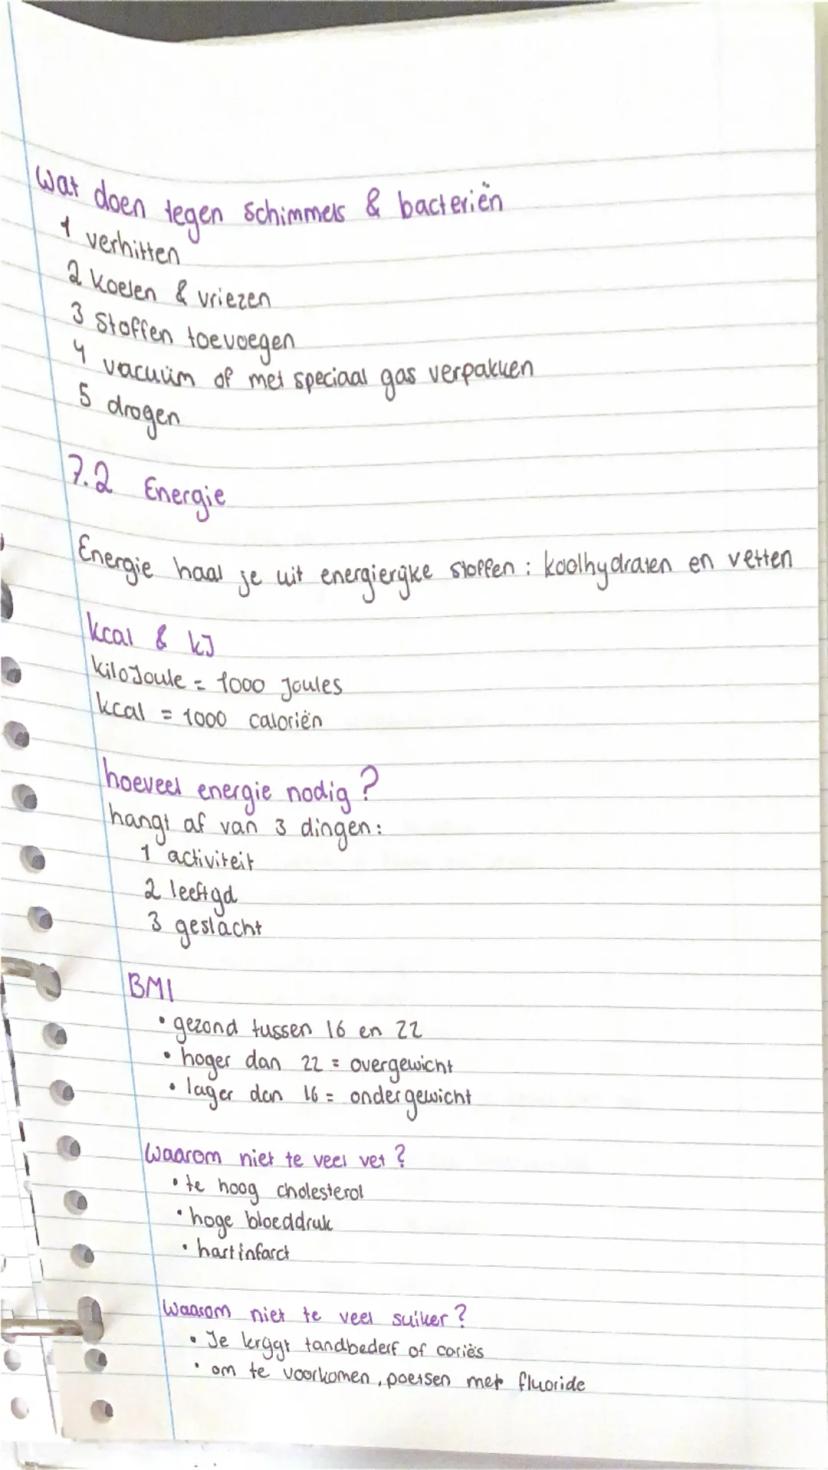 Wat doen tegen schimmels & bacteriën
1 verhitten
2 koelen & vriezen
3 stoffen toevoegen
4 vacuüm of met speciaal gas verpakken
5 drogen
7.2 Energie
Energie haal je uit energierijke stoffen : koolhydraten en vetten
kcal & kJ
kiloJoule = 1000 Joules
kcal = 1000 caloriën
hoeveel energie nodig ?
hangt af van 3 dingen :
1 activiteit
2 leeftijd
3 geslacht
BMI
• gezond tussen 16 en 22
• hoger dan 22 = overgewicht
• lager dan 16 = ondergewicht
Waarom niet te veel vet ?
• te hoog cholesterol
• hoge bloeddruk
• hartinfarct
Waarom niet te veel suiker ?
• Je krijgt tandbederf of cariës
• om te voorkomen, poetsen met fluoride